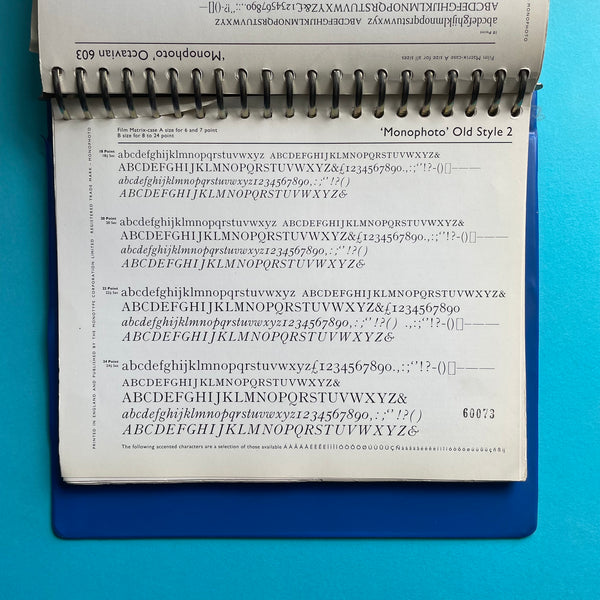 abcdefghijklm
ABCDEFGHIJKLMN
ABCDEFGHIJKLMNOPQRSTUVWXYZ&
'Monophoto' Octavian 603
Film Matrix-case A size for all sizes
MONOPHOTO
Film Matrix-case A size for 6 and 7 point
B size for 8 to 24 point
'Monophoto' Old Style 2
18 Point
abcdefghijklmnopqrstuvwxyz ABCDEFGHIJKLMNOPQRSTUVWXYZ&
ABCDEFGHIJKLMNOPQRSTUVWXYZ&£1234567890.,:;‘’!?-()[]———
abcdefghijklmnopqrstuvwxyz1234567890,:;‘’!?()
ABCDEFGHIJKLMNOPQRSTUVWXYZ&
20 Point
abcdefghijklmnopqrstuvwxyz ABCDEFGHIJKLMNOPQRSTUVWXYZ&
ABCDEFGHIJKLMNOPQRSTUVWXYZ&£1234567890.,:;‘’!?-()[]———
abcdefghijklmnopqrstuvwxyz1234567890,:;‘’!?()
ABCDEFGHIJKLMNOPQRSTUVWXYZ&
22 Point
abcdefghijklmnopqrstuvwxyz ABCDEFGHIJKLMNOPQRSTUVWXYZ&
ABCDEFGHIJKLMNOPQRSTUVWXYZ&£1234567890
abcdefghijklmnopqrstuvwxyz1234567890,:;‘’!?() .,:;‘’!?-()[]———
ABCDEFGHIJKLMNOPQRSTUVWXYZ&
24 Point
abcdefghijklmnopqrstuvwxyz£1234567890.,:;‘’!?-()[]———
ABCDEFGHIJKLMNOPQRSTUVWXYZ&
ABCDEFGHIJKLMNOPQRSTUVWXYZ&
abcdefghijklmnopqrstuvwxyz1234567890,:;‘’!?()
60073
ABCDEFGHIJKLMNOPQRSTUVWXYZ&
The following accented characters are a selection of those available
PRINTED IN ENGLAND AND PUBLISHED BY THE MONOTYPE CORPORATION LIMITED REGISTERED TRADE MARK - MONOPHOTO